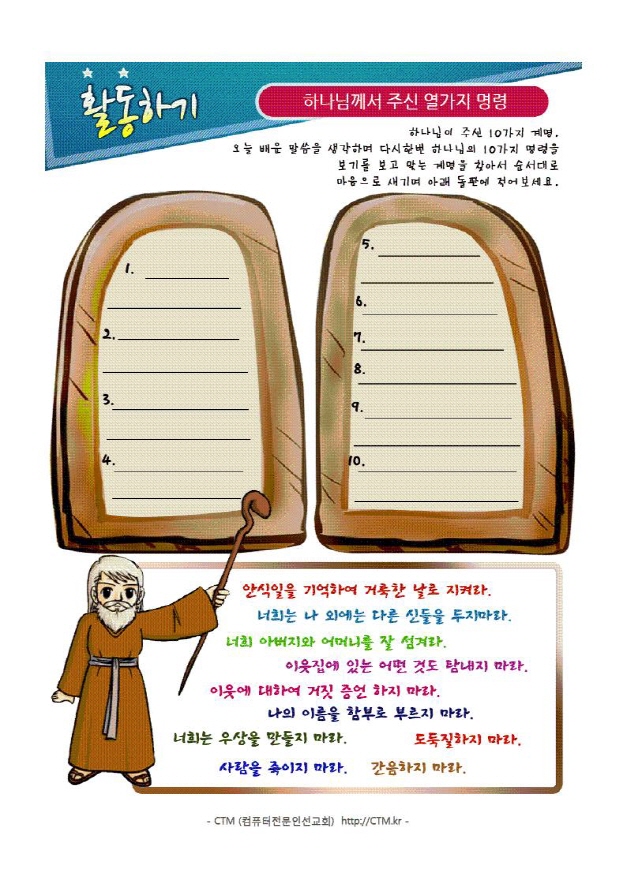 활동하기
하나님께서 주신 열가지 명령
하나님이 주신 10가지 계명.
오늘 배운 말씀을 생각하며 다시한번 하나님의 10가지 명령을
보기를 보고 맞는 계명을 찾아서 순서대로
마음으로 새기며 아래 돌판에 적어보세요.
1.
2.
3.
4.
5.
6.
7.
8.
9.
10.
안식일을 기억하여 거룩한 날로 지켜라.
너희는 나 외에는 다른 신들을 두지마라.
너희 아버지와 어머니를 잘 섬겨라.
이웃집에 있는 어떤 것도 탐내지 마라.
이웃에 대하여 거짓 증언 하지 마라.
나의 이름을 함부로 부르지 마라.
너희는 우상을 만들지 마라. 도둑질하지 마라.
사람을 죽이지 마라. 간음하지 마라.
- CTM (컴퓨터전문인선교회) http://CTM.kr -